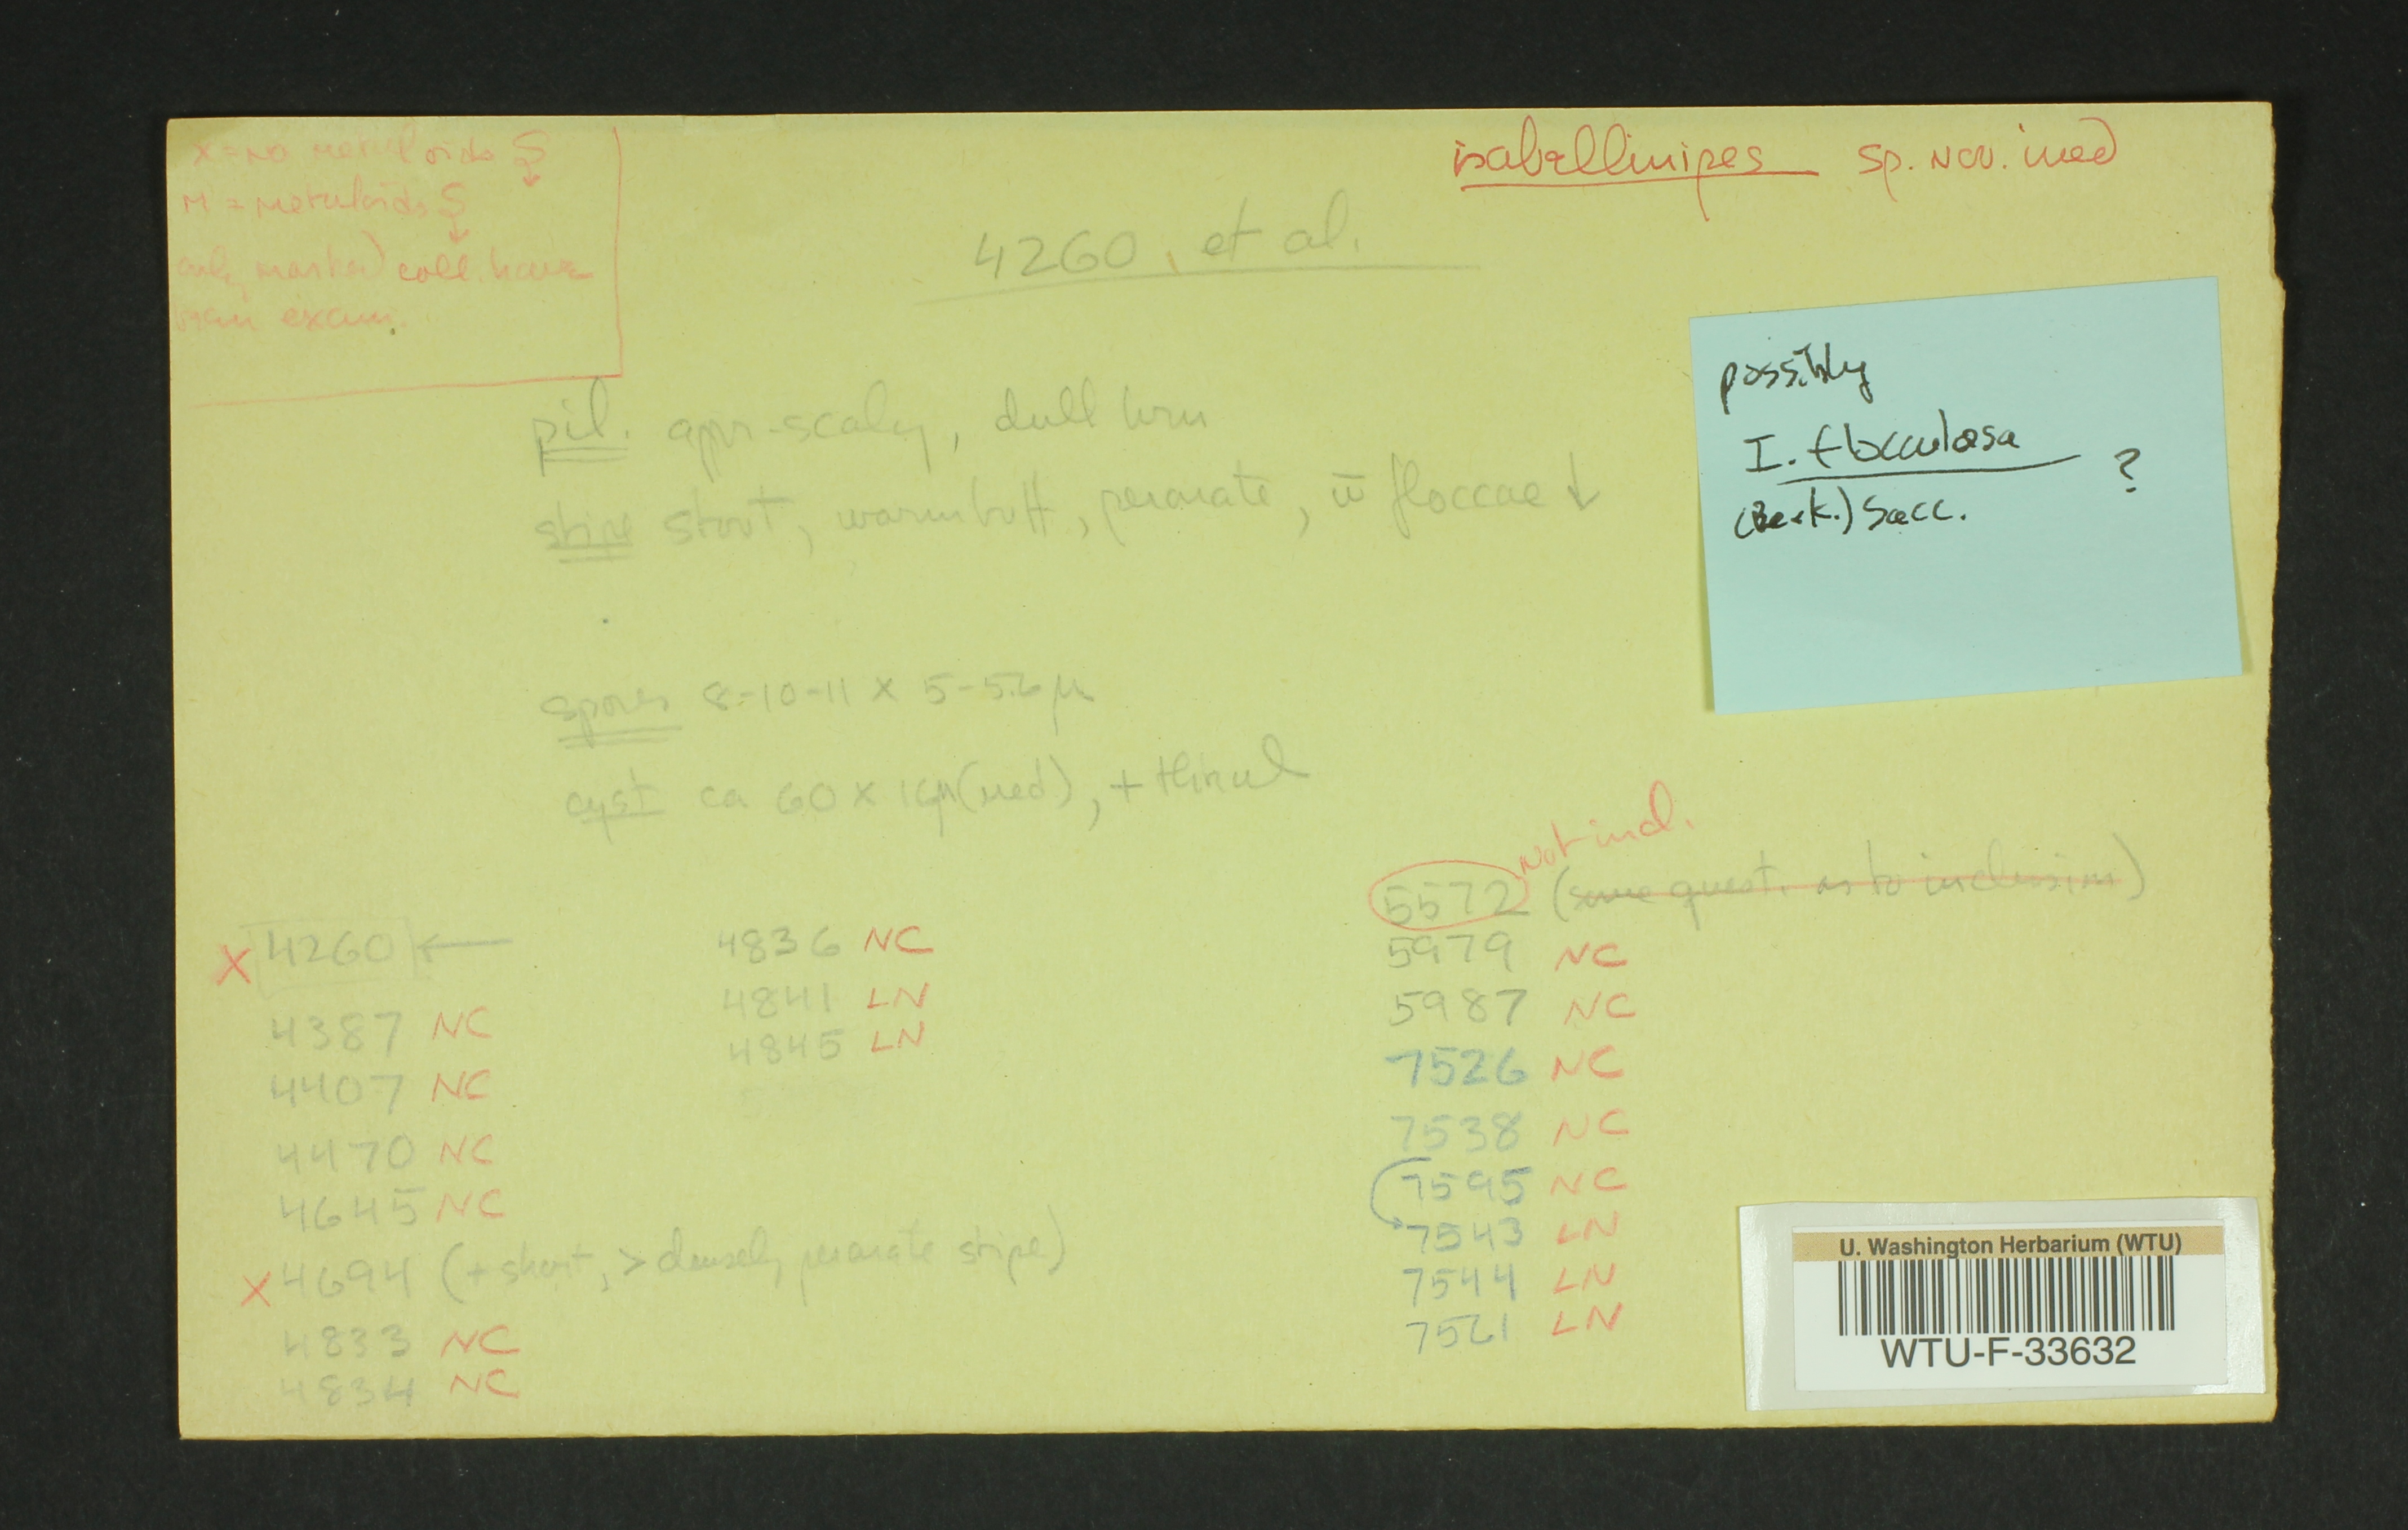 x = no metuloids S
M = metuloids S
only marked coll. have
been exam.
isabellinipes sp. nov. ined
4260, et al.
possibly
I. flocculosa ?
(Berk.) Sacc.
pil. appr-scaly, dull brn
stipe stout, warm buff, peronate, w̄ floccae ↓
spores 8-10-11 x 5-5.6 μ
cyst ca 60 x 16μ (med),
X 4260 ←
4387 NC
4407 NC
4470 NC
4645 NC
X 4694 (+ short, > densely peronate stipe)
4833 NC
4834 NC
4836 NC
4841 LN
4845 LN
5572 Not incl. (some quest. as to inclusion)
5979 NC
5987 NC
7526 NC
7538 NC
7595 NC
7543 LN
7544 LN
7521 LN
U. Washington Herbarium (WTU)
WTU-F-33632